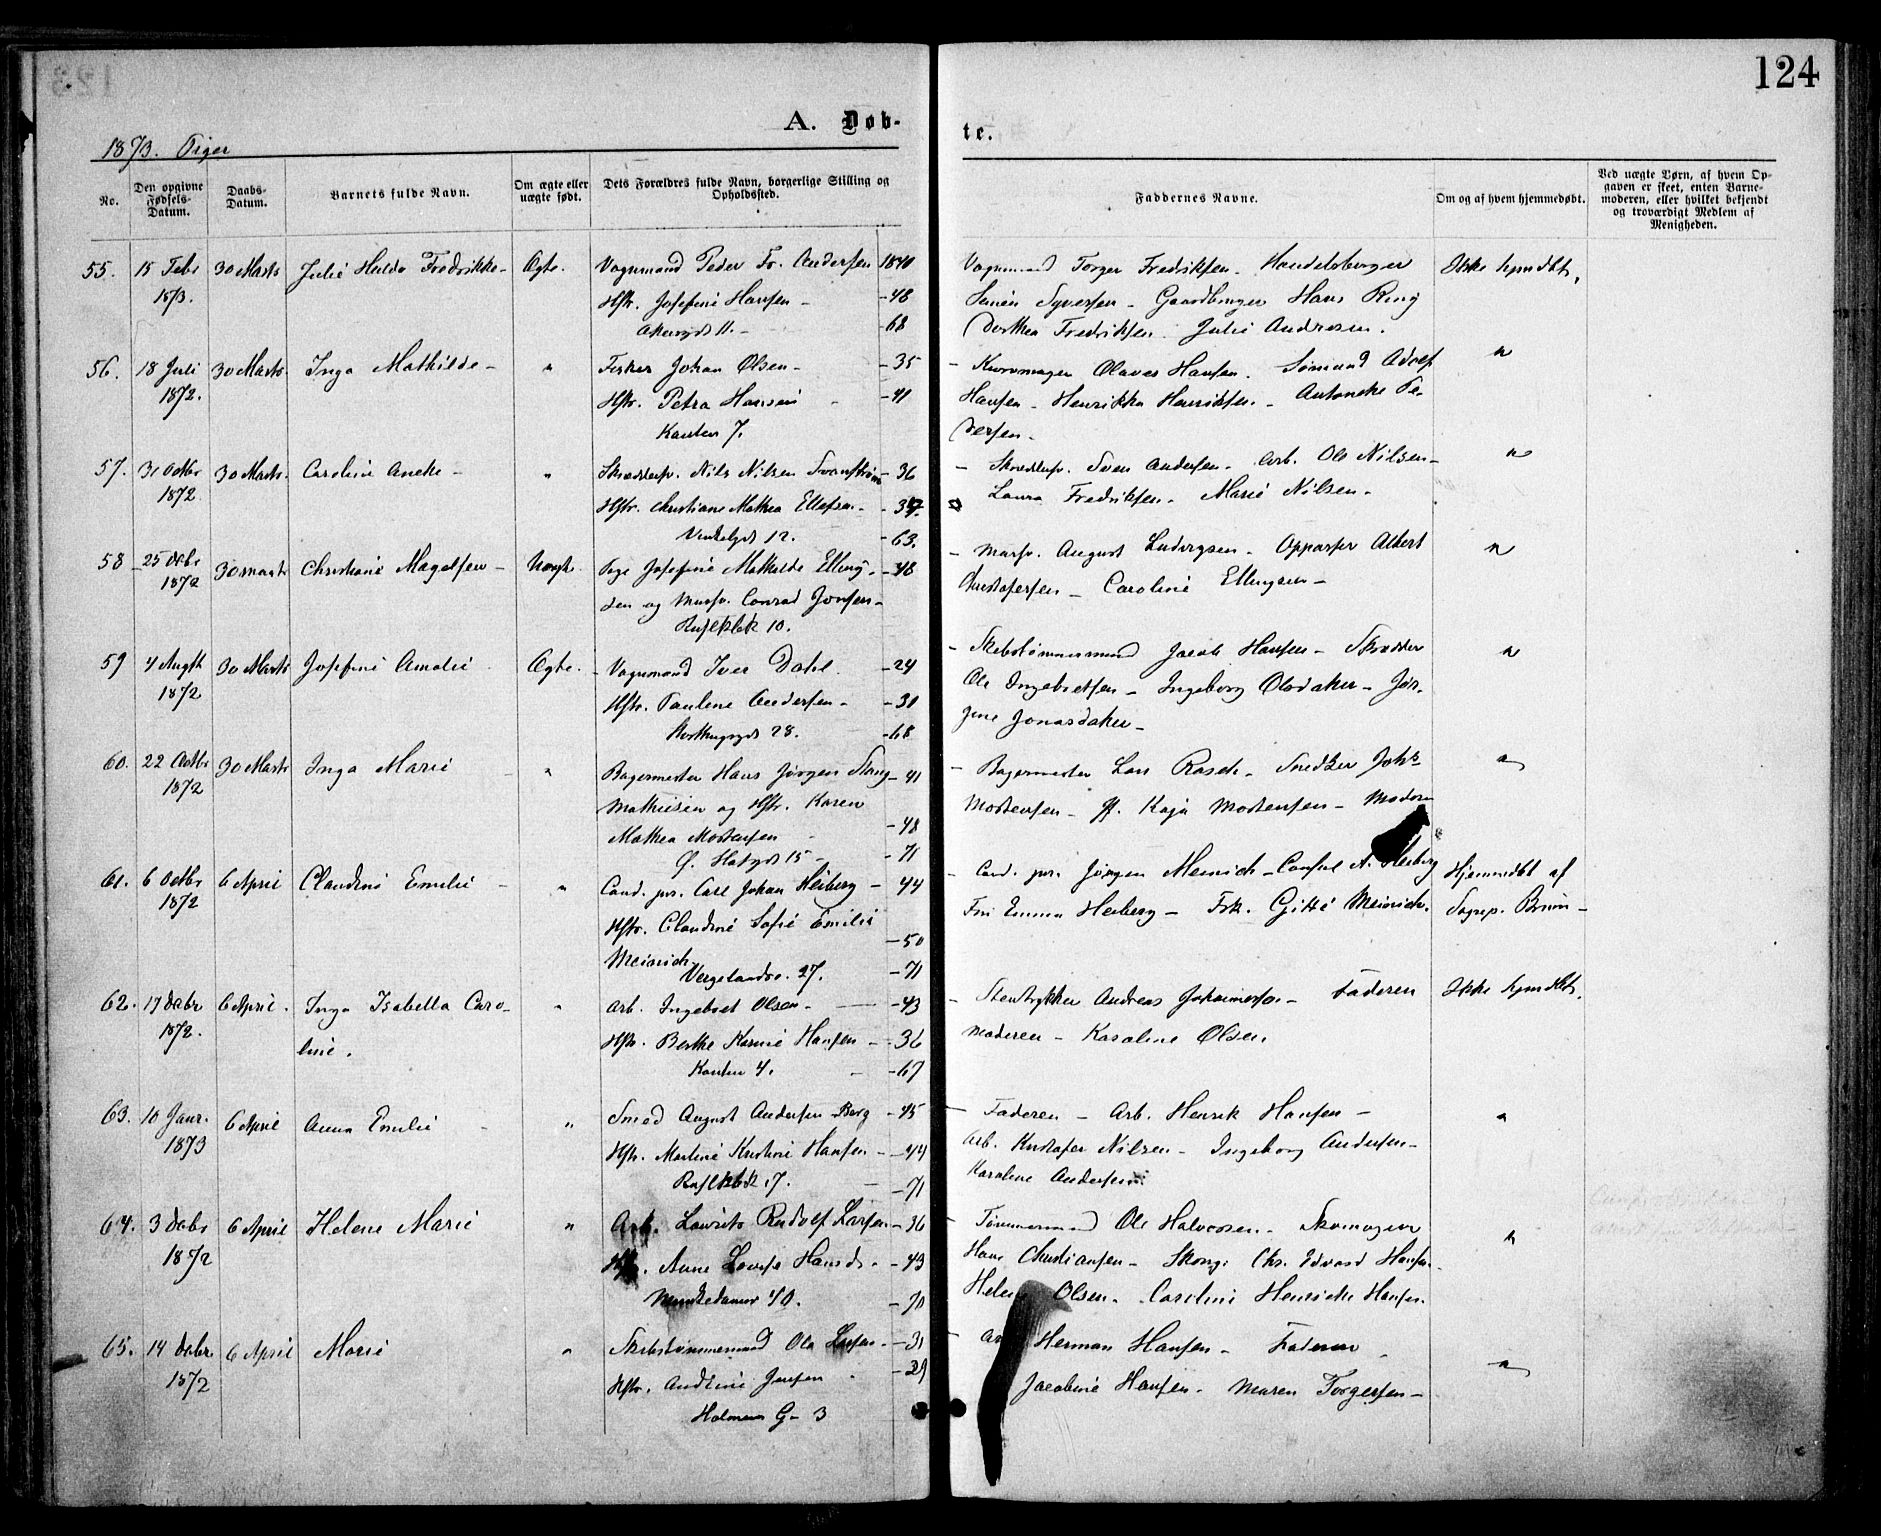 124
A. Døb-
te.
1873. Piger
No.
Den opgivne Fødsels-Datum.
Daabs-Datum.
Barnets fulde Navn.
Om ægte eller uægte født.
Dets Forældres fulde Navn, borgerlige Stilling og Opholdssted.
Faddernes Navne.
Om og af hvem hjemmedøbt.
Ved uægte Børn, af hvem Opgaven er skeet, enten Barnemoderen, eller hvilket bekjendt og troværdigt Medlem af Menigheden.
55. 15 Febr 30 Marts Julie Hulda Fredrikke - Ægte. Vognmand Peder Fr. Andersen 1840 Vognmand Torger Fredriksen - Handelsborger Ikke hjmdbt.
1873. Hstr. Josefine Hansen - - 48 Syversen - Gaardbruger Hans Ring
Akersgd 11. - - 68 Dorthea Fredriksen. Julie Andresen.
56. 18 Juli 30 Marts Inga Mathilde - " Fisker Johan Olsen - - 35 - Olaves Hansen. Sømand Adolf "
1872. Hstr. Petra Hansen - 41 Hansen - Henrikka Henriksen - Antonette Pe-
Kanten 7. dersen.
57. 31 Octbr 30 Marts. Caroline Anette - " Skrædersv. Nils Nilsen Svanstrøm - 36 - Skrædersv. Sven Andersen - Arb. Ole Nilsen - "
1872. Hstr. Christiane Mathea Ellefsen - - 37. Laura Fredriksen - Marie Nilsen -
12. - 63.
58 25 Decbr 30 Marts Christiane Magdalene - Uægte. Pige Josefine Mathilde Elling- - 48 - Mursv. August Ludvigsen - Oppasser Albert "
1872 sen og Mursv. Conrad Jonsen - Christofersen - Caroline Ellingsen -
10.
59 4 Augst 30 Marts Josefine Amalie Ægte. - Vognmand Iver Dahl - 24 - Skibstømmermand Jacob Hansen - Skrædder "
1872 Hstr. Pauline Andersen - - 30 Ole Ingebretsen - Ingeborg Olsdatter - Jør-
Storthingsgd 28. - 68 gine Jonasdatter -
60. 22 Octbr 30 Marts Inga Marie " Bagermester Hans Jørgen Stang - 41 - Bagermester Lars Rasch - Snedker Johs "
1872 Mathiesen og Hstr. Karen Mortensen - Kaja Mortensen - Moderen
Mathea Mortensen - 48
Ø. 15 - - 71
61. 6 Octbr 6 April Claudine Emilie - " Cand. jur. Carl Johan Heiberg - 44 - Cand. jur. Jørgen Meinich - Consul A. Heiberg Hjemmedbt af
1872 Hstr. Claudine Sofie Emilie - 50 Fru Emma Heiberg - Frk. Gitte Meinich. Sogrep. Bruun -
Meinich
Vergelandsv. 27. - 71
62. 17 Decbr 6 April. Inga Isabella Caro- " Arb. Ingebret Olsen - - 43 - Stentrykker Andreas Johannesen - Faderen Ikke hjmdbt.
1872. line. Hstr. Berthe Karine Hansen - - 36 Moderen - Karoline Olsen.
Kanten 4. - - 67
63. 10 Janr. 6 April Anna Emilie - " Smed August Andersen Berg - 45 - Faderen - Arb. Henrik Hansen - "
1873 Hstr. Martine Kristine Hansen - - 44 Arb. Kristofer Nilsen - Ingeborg Andersen -
17. - - 71 Karoline Andersen
64. 3 Decbr 6 April Helene Marie " Arb. Laurits Rudolf Larsen - 36 - Tømmermand Ole Halvorsen - Skomager "
1872 Hstr. Anne Lovise Hansd. - - 43 Hans Christiansen - Chr. Edvard Hansen.
Munkedamsv 40. - 70 Helene Olsen. Caroline Henriette Hansen.
65. 14 Decbr 6 April Marie " Skibstømmermand Ole Larsen - - 31 - Arb Herman Hansen - Faderen "
1872 Hstr. Andrine Jensen - 39 Jacobine Hansen - Maren Torgersen -
Holmens G - 3